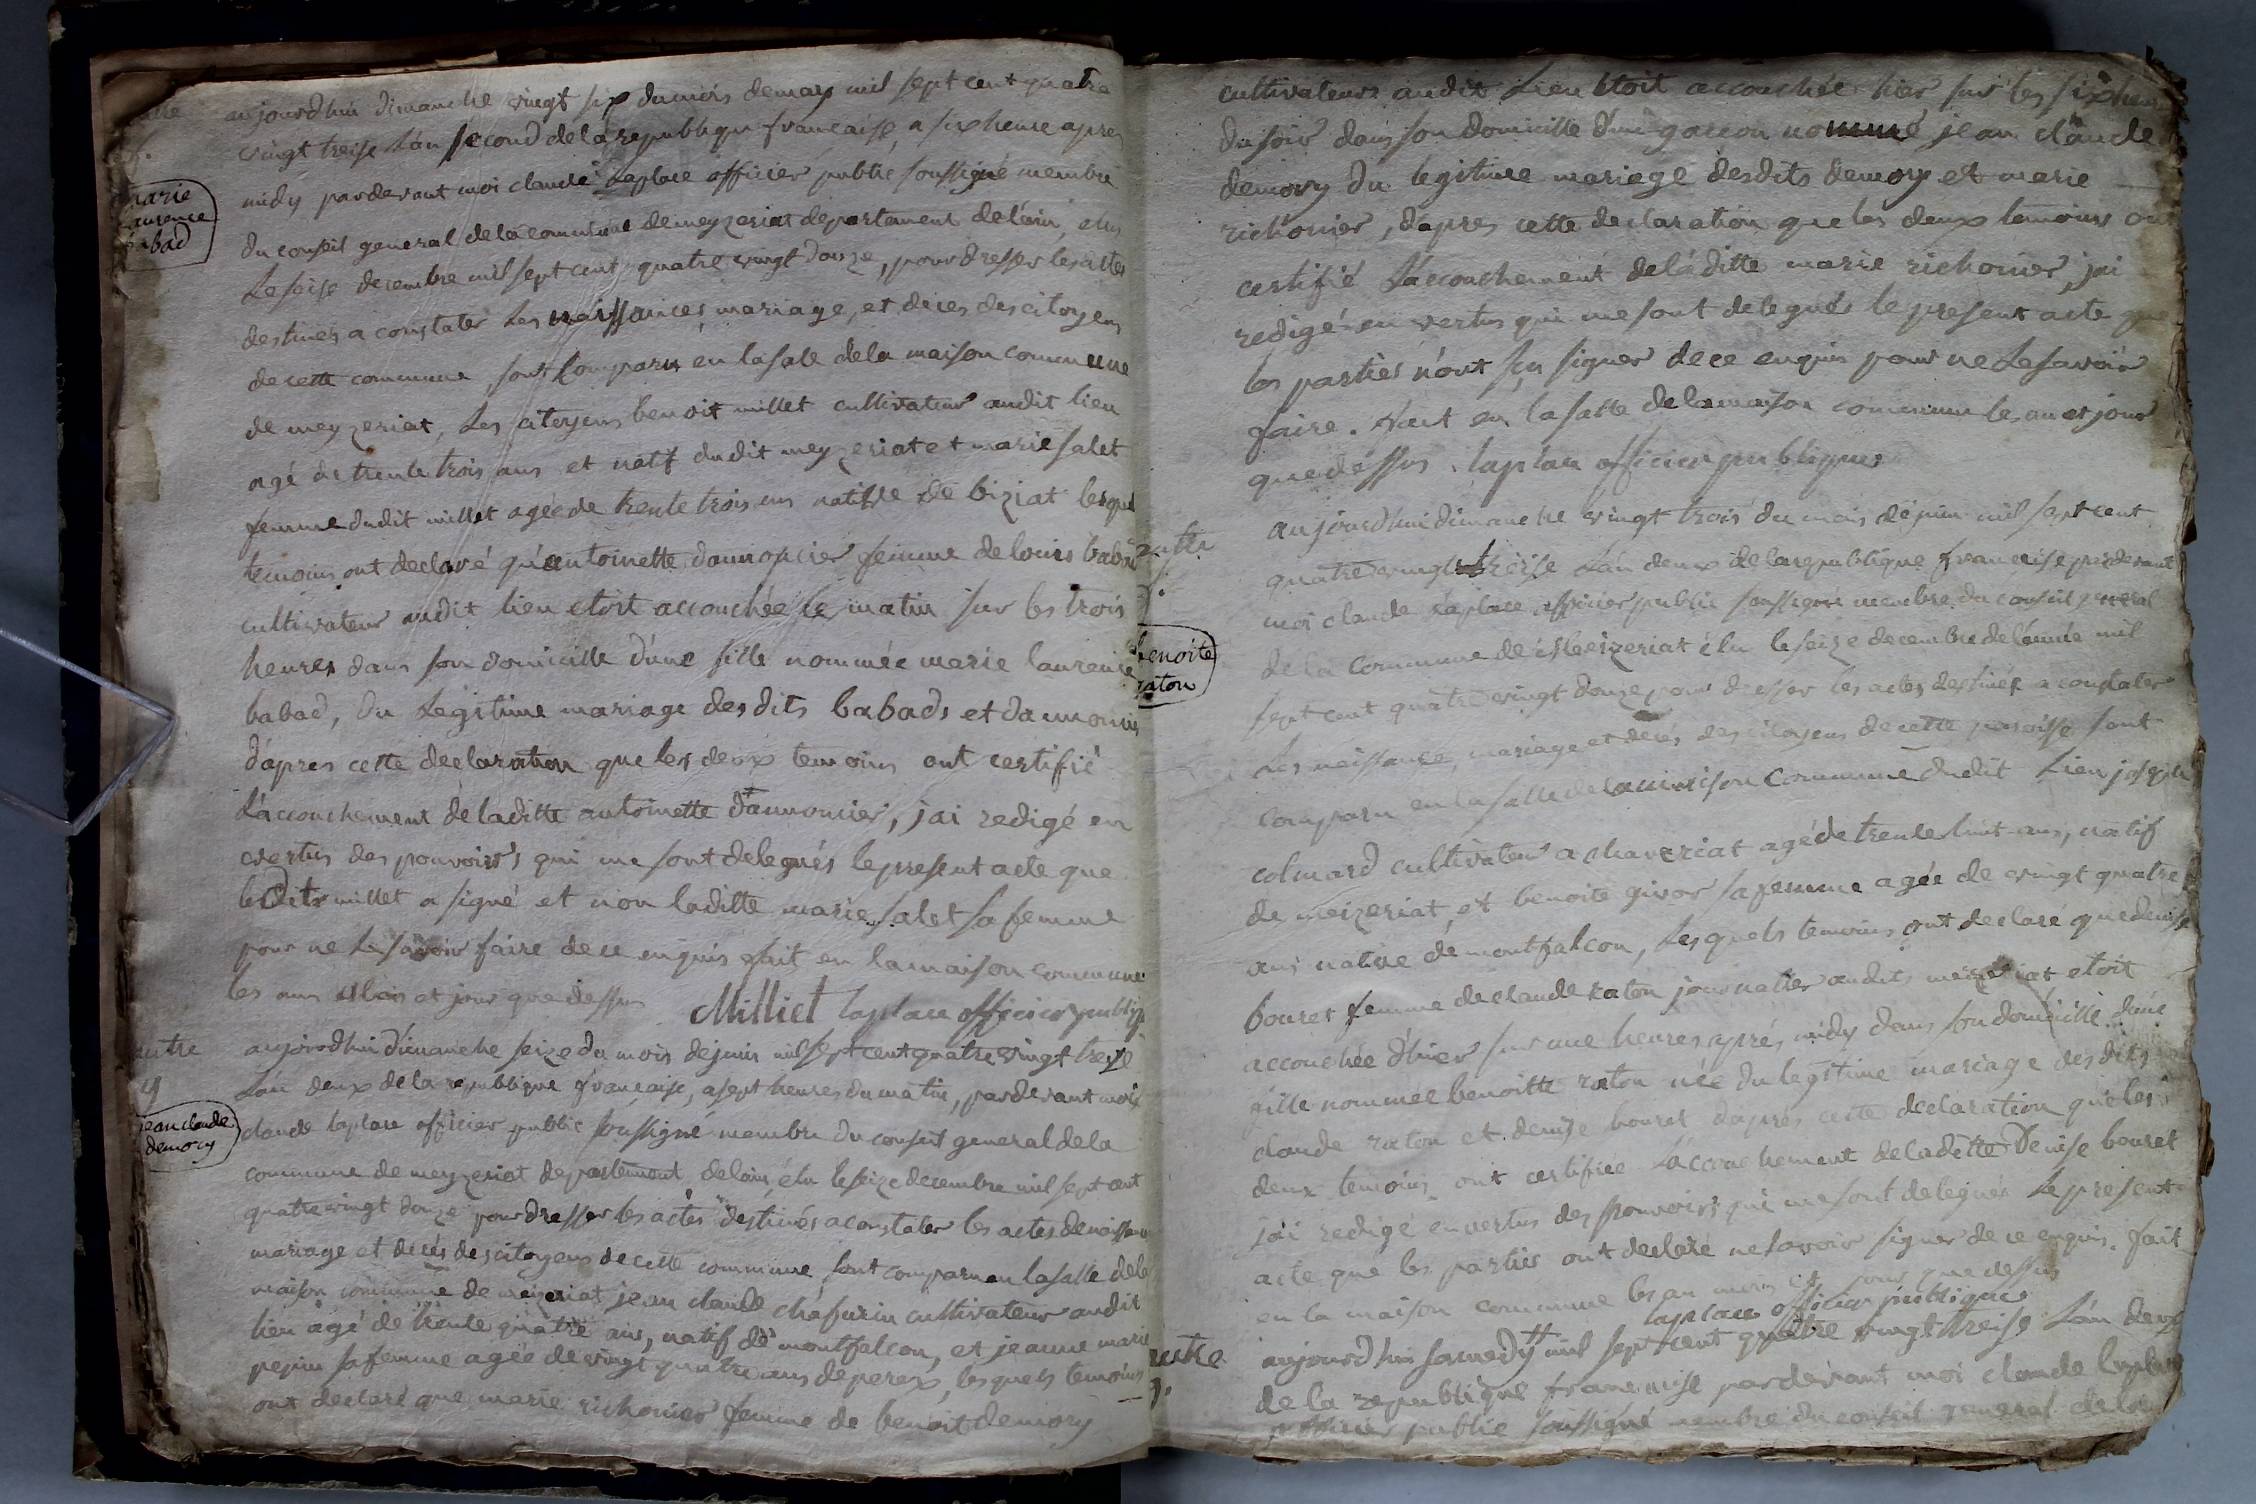 aujourdhui dimanche vingt six du mois de may mil sept cent quatre
vingt treise L'an second de la republique francaise, a six heure apres
midy pardevant moi claude Laplace officier public soussigné membre
marie
laurence
babad
du conseil general de la commune de meyzeriat departement de l'ain, elu
Le seise decembre mil sept cent quatre vingt douze, pour dresser les actes
destinés a constater Les naissances mariage, et deces des citoyens
de cette commune, sont Comparu en la sale de la maison commune
de meyzeriat, Les citoyens benoit millet cultivateur audit lieu
agé de trente trois ans et natif dudit meyzeriat et marie salet
femme dudit millet agée de trente trois ans native de biziat lesque
temoins ont declaré qu'antoinette daunoncier femme de louis babad
cultivateur audit lieu etoit accouchée le matin sur les trois
heures dans son domicille d'une fille nommée marie laurence
babad, du Legitime mariage desdits babads et daunoncie
d'apres cette declaration que les deux temoins ont certifié
L'accouchement de laditte antoinette d'aunoncier, jai redigé en
vertus des pouvoirs qui me sont delegués le present acte que
ledits millet a signé et non laditte marie salet sa femme
pour ne Le savoir faire de ce enquis fait en la maison commune
les ans Mois et jour que dessus Milliet laplace officier publiq
autre
9
aujourdhui dimanche seize du mois de juin mil sept cent quatre vingt treize
L'an deux de la republique francaise, a sept heures du matin, pardevant moi
jean claude
demory
claude laplace officier public soussigné membre du conseil general de la
commune de meyzeriat departement de lain, élu le seize decembre mil sept cent
quatre vingt douze pour dresser les actes destinés a constater les actes de naissance
mariage et decés des citoyens de cette commune sont comparu en la salle dela
maison commune de meizeriat jean claude chafurin cultivateur audit
lieu agé de trente quatre ans, natif de montfalcon, et jeanne marie
pepin sa femme agée de vingt quatre ans de perex, lesquels temoins
ont declaré que marie richonier femme de benoit demory
cultivateurs audit Lieu Etoit accouchée hier sur les six heure
du soir dans son domicille d'un garcon nommé jean claude
demory du legitime mariage desdits demory et marie
richonier, d'apres cette declaration que les deux temoins ont
certifié L'accouchement de laditte marie richonier, jai
redigé en vertus qui me sont delegués le present acte que
les parties n'ont sçu signer de ce enquis pour ne Le savoir
faire. Fait en la salle de la maison commune les an et jour
que dessus. laplace officier publique
autre
aujourdhui dimanche vingt trois du mois de juin mil sept cent
quatre vingt treise L'an deux de la republique francaise pardevant
moi claude Laplace officier public soussigné membre du conseil general
benoite
raton
de la Commune de Meizeriat élu le seize decembre de l'année mil
sept cent quatre vingt douze pour dresser les actes destinés a constater
Les naissance, mariage et decés des citoyens de cette paroisse sont
comparu en la salle de la maison Commune dudit Lieu joseph
colmard cultivateur a chaveriat agé de trente huit ans, natif
de meizeriat, et benoite givor sa femme agée de vingt quatre
ans native de montfalcon, Lesquels temoins ont declaré que denise
bouret femme de claude raton journalier audit meizeriat etoit
accouchée d'hier sur une heures aprés midy dans son domicille d'une
fille nommée benoitte raton née du legitime mariage desdits
claude raton et denise bouret d'aprés cette declaration que les
deux temoins ont certifiée L'accouchement de laditte Denise bouret
j'ai redigé en vertus des pouvoirs qui me sont delegués Le present
acte que les parties ont declaré ne savoir signer de ce enquis. fait
en la maison commune les an mois et jour que dessus
laplace officier publique
autre
aujourdhui samedy mil sept cent quatre vingt treise L'an deux
de la republique francaise pardevant moi claude laplace
officier public soussigné membre du conseil general de la